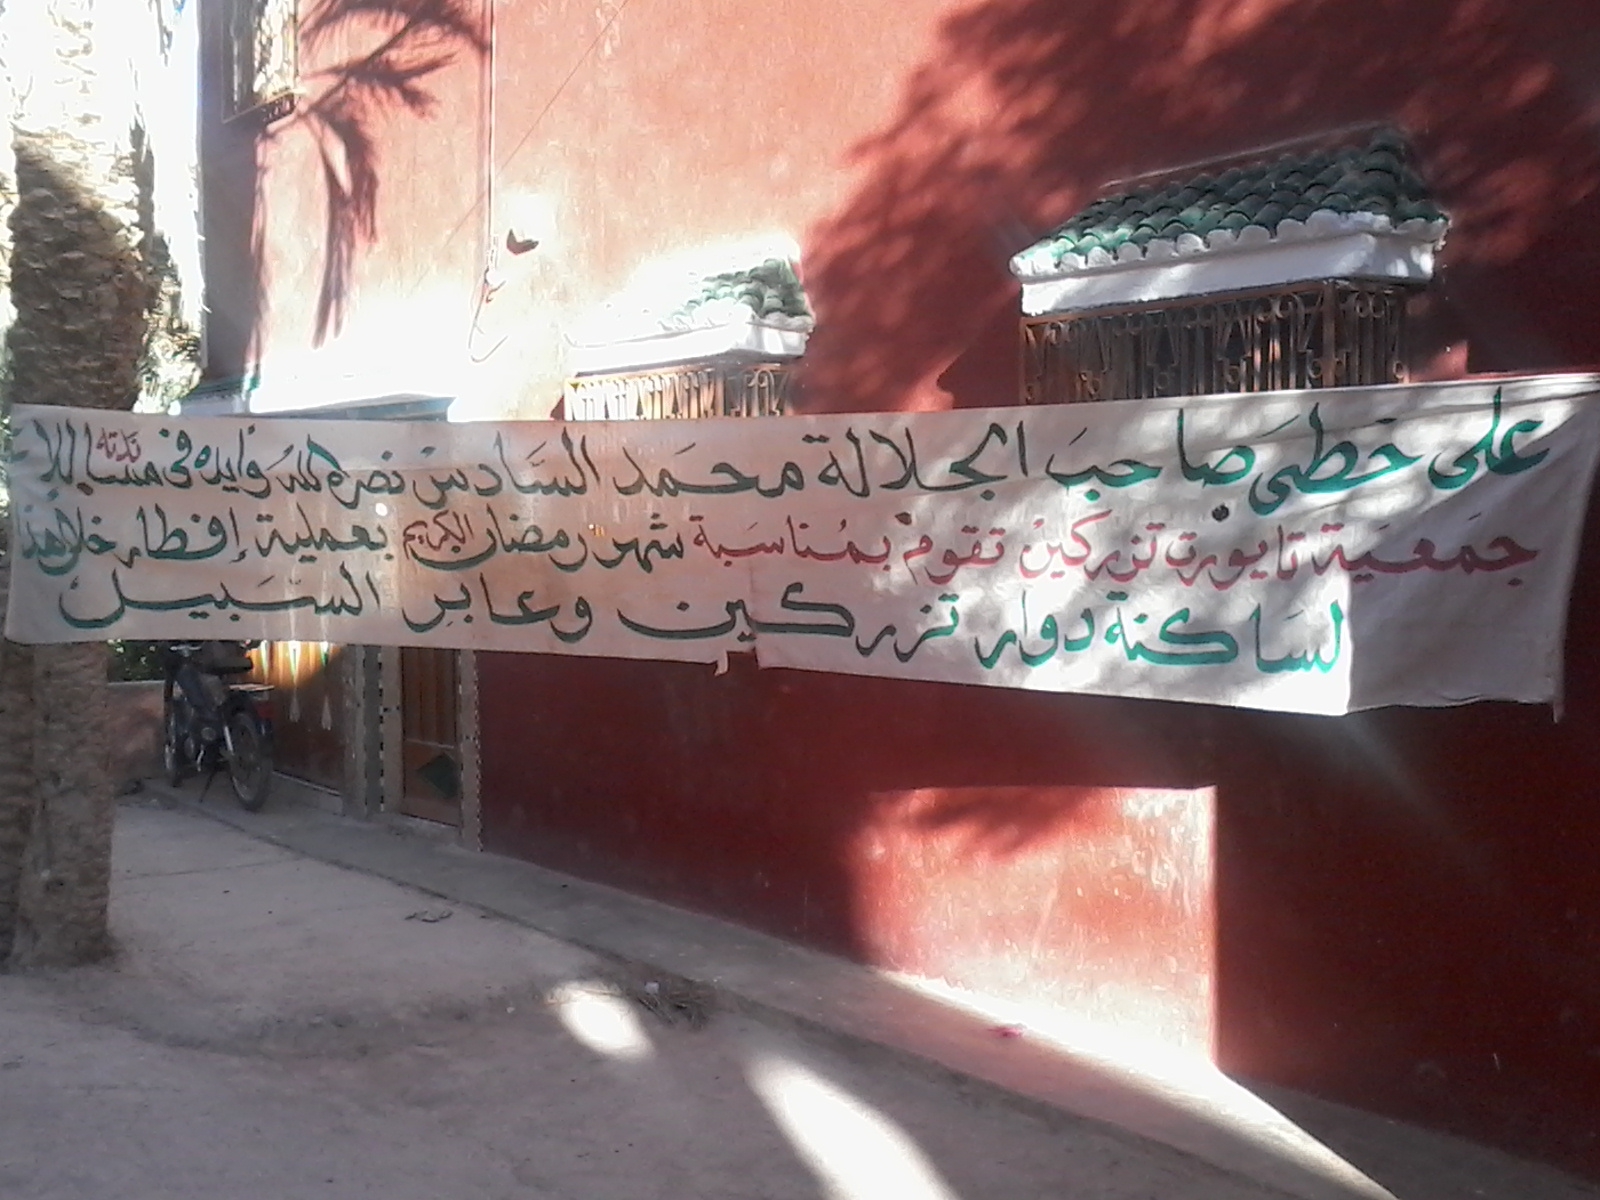 على خطى صاحب الجلالة محمد السادس نصره الله وايده في مساندته
جمعية تايورت تزركين تقوم بمناسبة شهر رمضان الكريم بعملية إفطار خلال هذا
لساكنة دوار تزركين وعابر السبيل